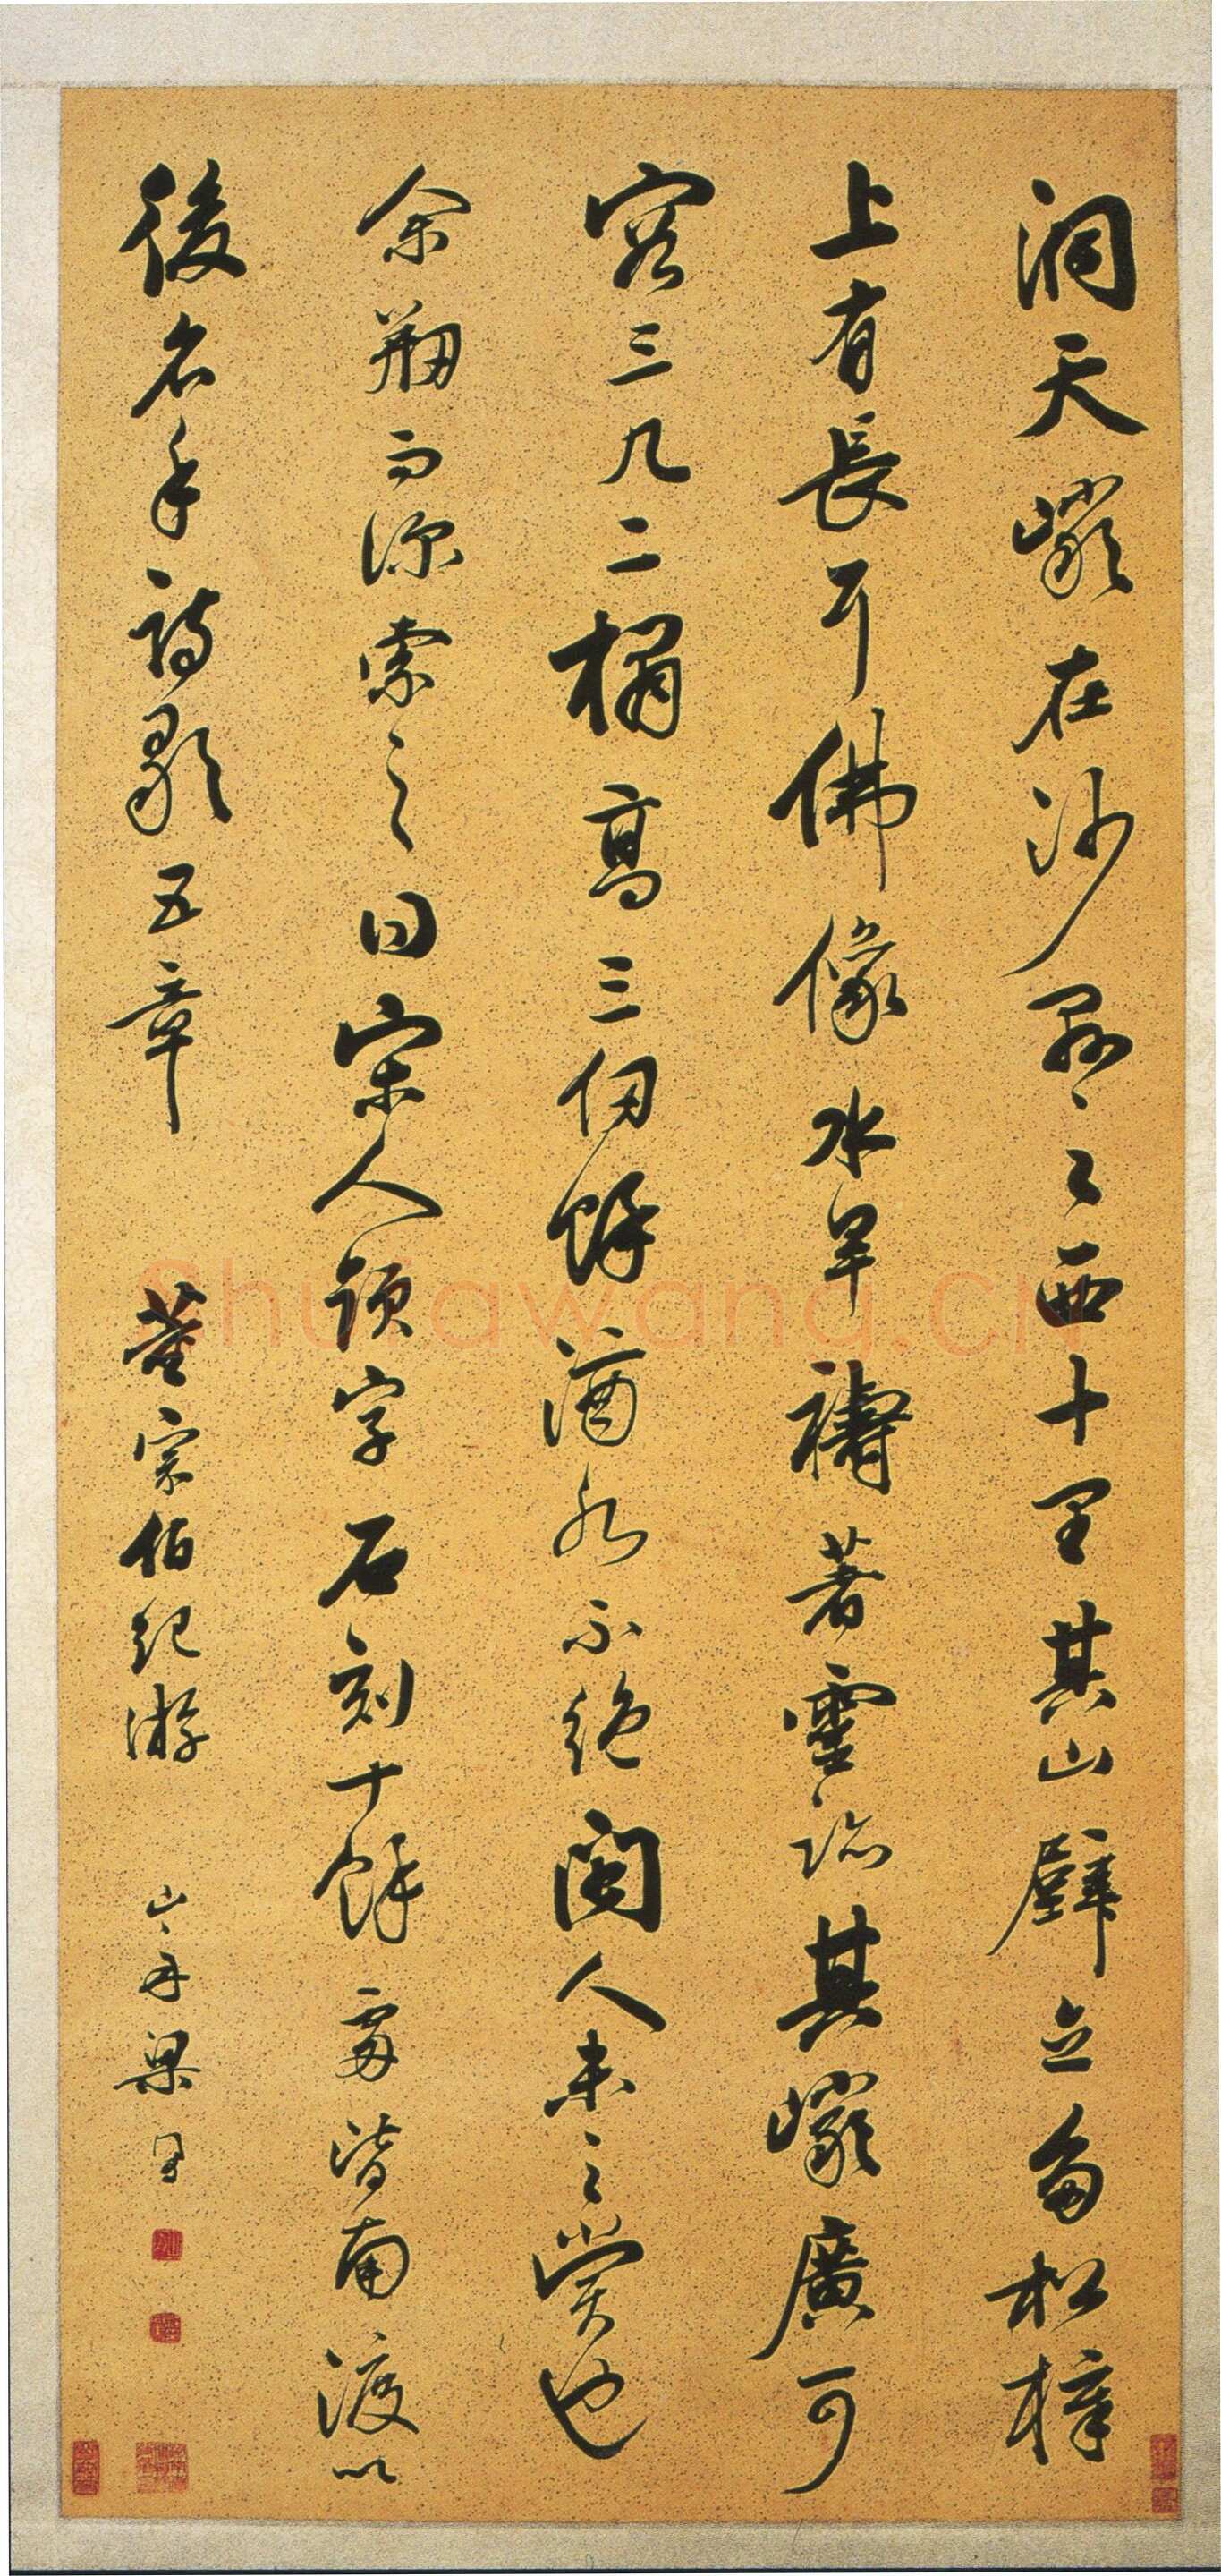 洞天巖在沙縣之西十里其山壁立多松樟
上有長耳佛像水旱禱著靈跡其巖廣可
容三几二榻高三仞餘滴水不絕閩人未之賞也
余剏而深索之曰宋人題字石刻十餘處皆南渡以
後名手詩歌五章
董宗伯紀游
山舟梁同書
Shufawang.CN